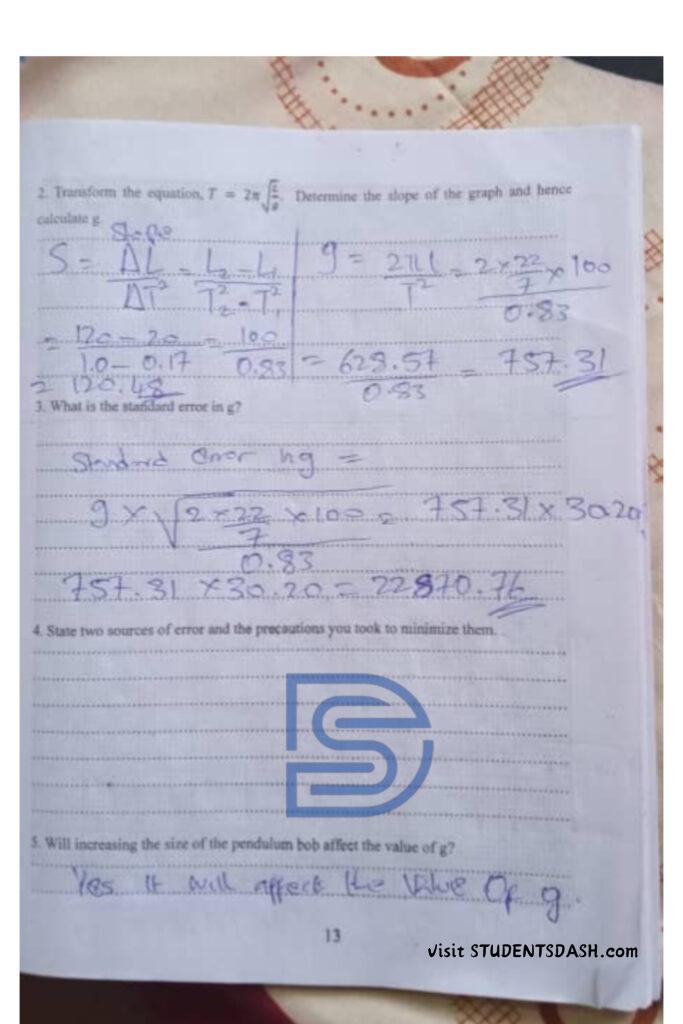 2. Transform the equation, T = 2π√(L/g). Determine the slope of the graph and hence
calculate g.
Slope
S = ΔL/ΔT² = L₂ - L₁/T₂² - T₁²
= 120 - 20/1.0 - 0.17 = 100/0.83
= 120.48
g = 2πL/T² = 2 × 22/7 × 100/0.83
= 628.57/0.83 = 757.31
3. What is the standard error in g?
Standard error in g =
g × √(2 × 22/7 × 100/0.83) = 757.31 × 30.20
757.31 × 30.20 = 22870.76
4. State two sources of error and the precautions you took to minimize them.
5. Will increasing the size of the pendulum bob affect the value of g?
Yes it will affect the value of g.
13
Visit STUDENTSDASH.com